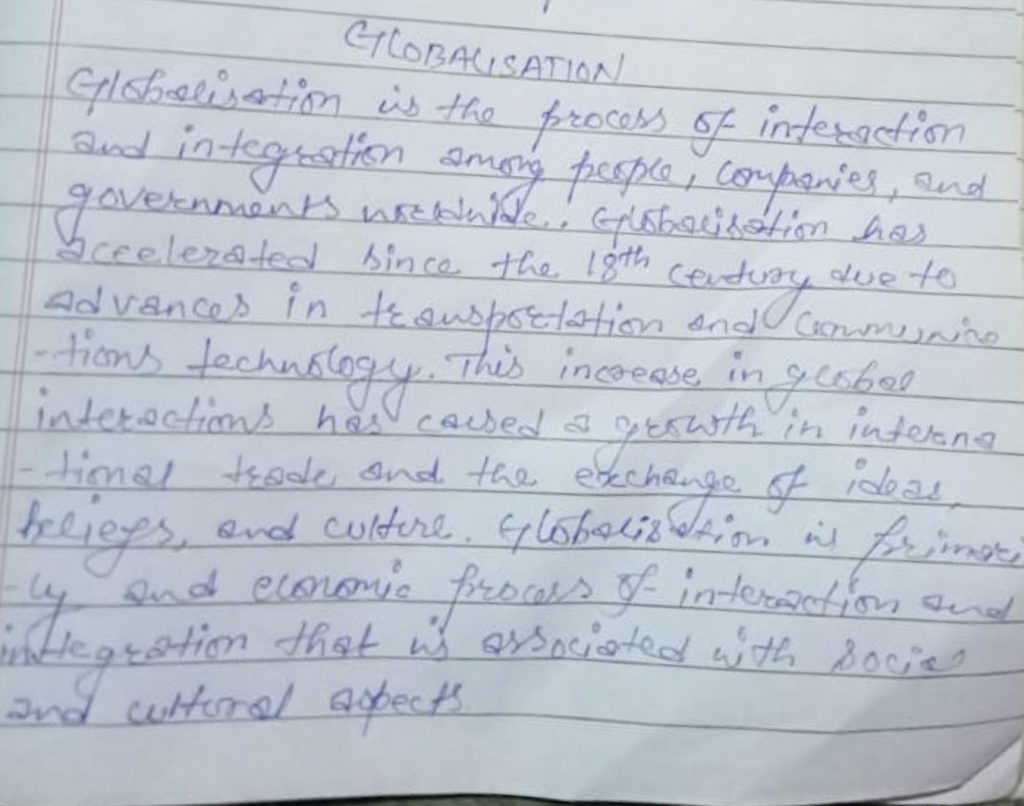 GLOBALISATION
Globalisation is the process of interaction
and integration among people, companies, and
governments worldwide.. Globalisation has
accelerated since the 18th century due to
advances in transportation and Communica
-tions technology. This increase in global
interactions has caused a growth in interna
-tional trade and the exchange of ideas,
beliefs, and culture. Globalisation is primari
-ly and economic process of interaction and
integration that is associated with social
and cultural aspects.